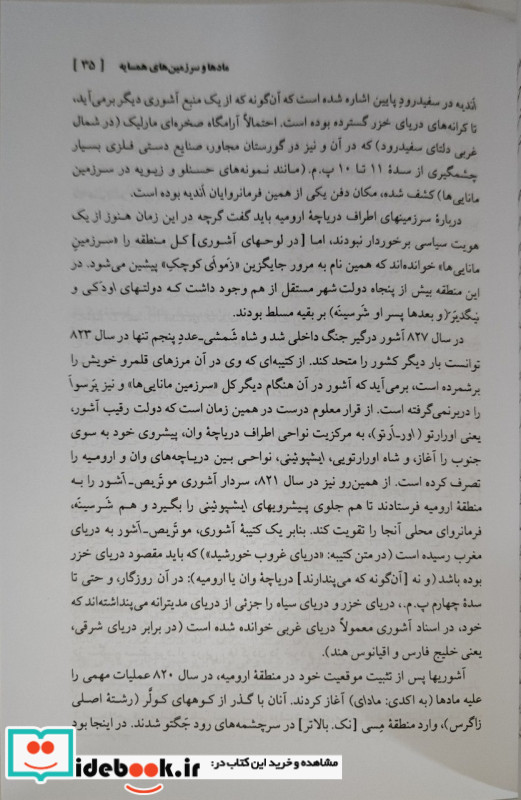 مادها و سرزمین‌های همسایه [ ۳۵ ]
اَندیه در سفیدرود پایین اشاره شده است که آن‌گونه که از یک منبع آشوری دیگر برمی‌آید،
تا کرانه‌های دریای خزر گسترده بوده است. احتمالاً آرامگاه صخره‌ای مارلیک (در شمال
غربی دلتای سفیدرود) که در آن و نیز در گورستان مجاور، صنایع دستی فلزی بسیار
چشمگیری از سدۀ ۱۱ تا ۱۰ پ.م. (مانند نمونه‌های حسنلو و زیویه در سرزمین
مانایی‌ها) کشف شده، مکان دفن یکی از همین فرمانروایان اَندیه بوده است.
دربارۀ سرزمینهای اطراف دریاچۀ ارومیه باید گفت گرچه در این زمان هنوز از یک
هویت سیاسی برخوردار نبودند، اما [در لوحهای آشوری] کل منطقه را «سرزمین
مانایی‌ها» خوانده‌اند که همین نام به مرور جایگزین «زموای کوچک» پیشین می‌شود. در
این منطقه بیش از پنجاه دولت شهر مستقل از هم وجود داشت که دولتهای اودکی و
نیگدیَرَ (و بعدها پسر او شَرسینَه) بر بقیه مسلط بودند.
در سال ۸۲۷ آشور درگیر جنگ داخلی شد و شاه شَمشی-عددِ پنجم تنها در سال ۸۲۳
توانست بار دیگر کشور را متحد کند. از کتیبه‌ای که وی در آن مرزهای قلمرو خویش را
برشمرده است، برمی‌آید که آشور در آن هنگام دیگر کل «سرزمین مانایی‌ها» و نیز پَرسوآ
را دربرنمی‌گرفته است. از قرار معلوم درست در همین زمان است که دولت رقیب آشور،
یعنی اورارتو (اور-اَرتو)، به مرکزیت نواحی اطراف دریاچۀ وان، پیشروی خود به سوی
جنوب را آغاز، و شاه اورارتویی، ایشپوئینی، نواحی بین دریاچه‌های وان و ارومیه را
تصرف کرده است. از همین‌رو نیز در سال ۸۲۱، سردار آشوری موتَّریص-آشور را به
منطقۀ ارومیه فرستادند تا هم جلوی پیشرویهای ایشپوئینی را بگیرد و هم شَرسینَه،
فرمانروای محلی آنجا را تقویت کند. بنابر یک کتیبۀ آشوری، موتَّریص-آشور به دریای
مغرب رسیده است (در متن کتیبه: «دریای غروب خورشید») که باید مقصود دریای خزر
بوده باشد (و نه [آن‌گونه که می‌پندارند] دریاچۀ وان یا ارومیه): در آن روزگار، و حتی تا
سدۀ چهارم پ.م.، دریای خزر و دریای سیاه را جزئی از دریای مدیترانه می‌پنداشته‌اند که
خود، در اسناد آشوری معمولاً دریای غربی خوانده شده است (در برابر دریای شرقی،
یعنی خلیج فارس و اقیانوس هند).
آشوریها پس از تثبیت موقعیت خود در منطقۀ ارومیه، در سال ۸۲۰ عملیات مهمی را
علیه مادها (به اکدی: مادای) آغاز کردند. آنان با گذر از کوههای کولَّر (رشتۀ اصلی
زاگرس)، وارد منطقۀ مِسی [نک. بالاتر] در سرچشمه‌های رود جَگتو شدند. در اینجا بود
مشاهده و خرید این کتاب در:
idebook.ir